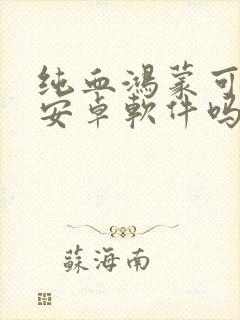 纯血鸿蒙可
安卓軟件吗
蘇海南